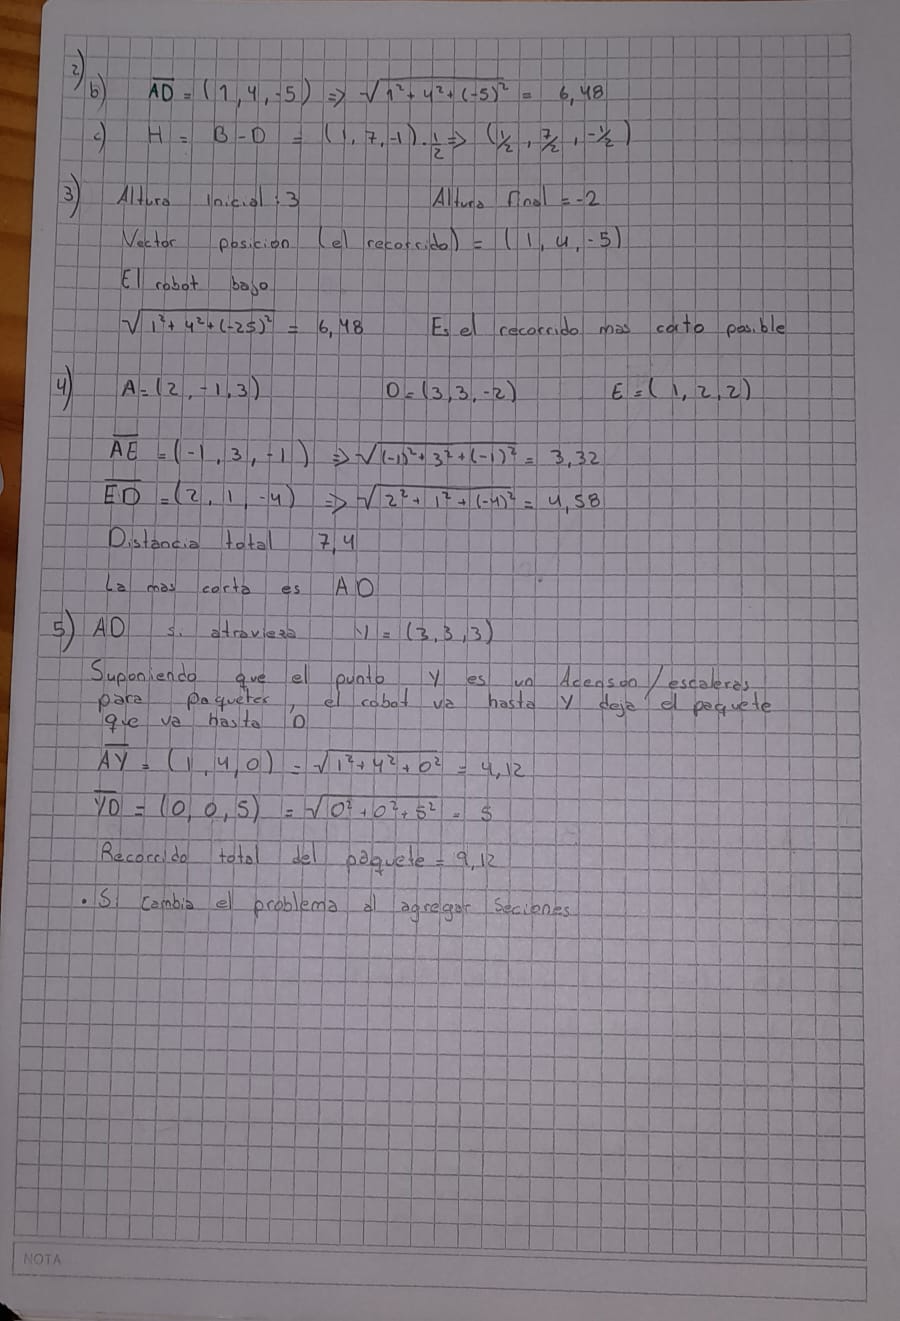 2)
b) AD = (1, 4, -5) => √1²+4²+(-5)² = 6,48
c) H = B-D = (1, 7, -1) . 1/2 => (1/2, 7/2, -1/2)
3) Altura Inicial: 3 Altura final = -2
Vector posicion (el recorrido) = (1, 4, -5)
El robot bajo
√1²+4²+(-25)² = 6,48 Es el recorrido mas corto posible
4) A = (2, -1, 3) D = (3, 3, -2) E = (1, 2, 2)
AE = (-1, 3, -1) => √(-1)²+3²+(-1)² = 3,32
ED = (2, 1, -4) => √2²+1²+(-4)² = 4,58
Distancia total 7,4
La mas corta es AD
5) AD si atravieza Y = (3, 3, 3)
Suponiendo que el punto Y es un Acenson/escaleras
para paquetes, el robot va hasta Y deja el paquete
que va hasta D
AY = (1, 4, 0) = √1²+4²+0² = 4,12
YD = (0, 0, 5) = √0²+0²+5² = 5
Recorrido total del paquete = 9,12
• Si cambia el problema al agregar Seciones
NOTA